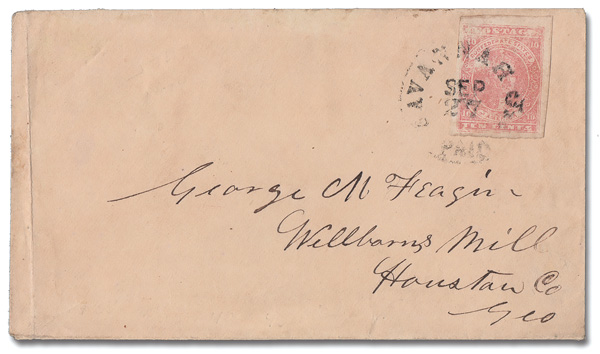 POSTAGE
TEN CENTS
SAVANNAH Ga
SEP
27
PAID
George M Feagin
Wellborns Mill
Houston Co
Geo